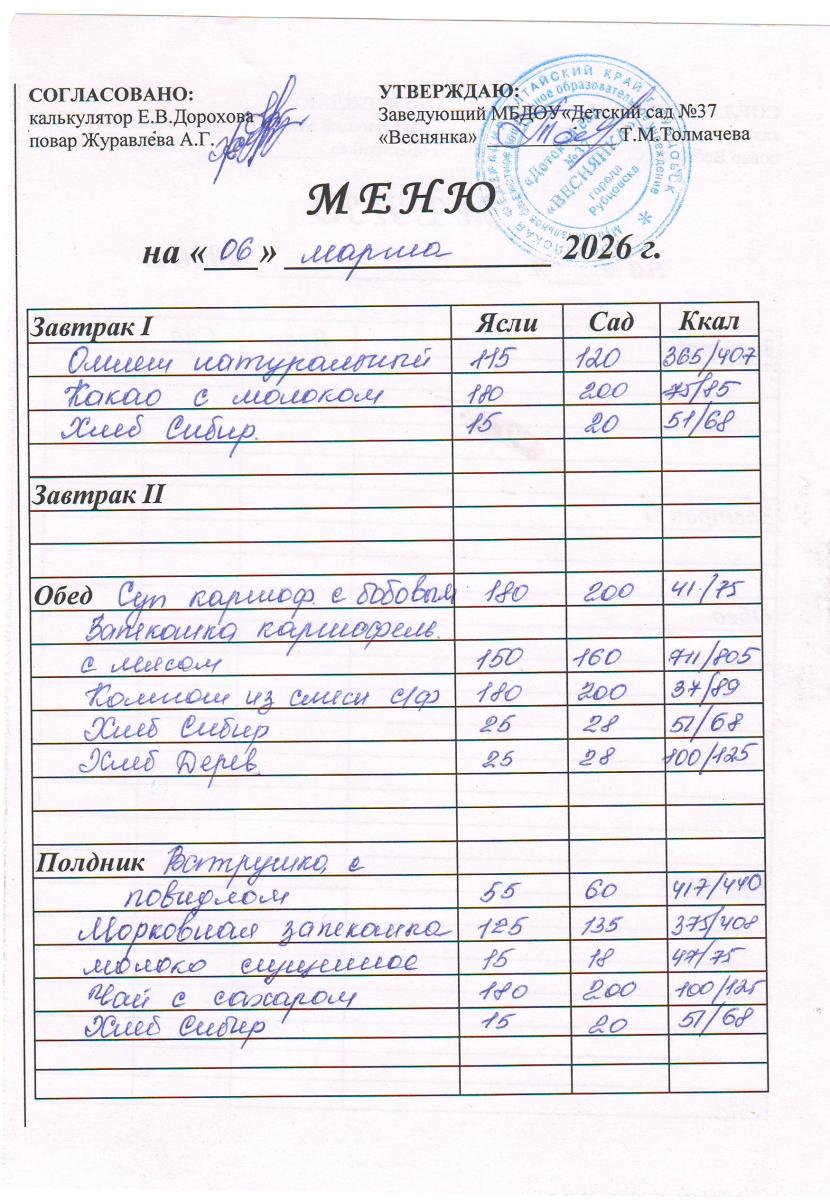 СОГЛАСОВАНО:
калькулятор Е.В.Дорохова
повар Журавлева А.Г.
УТВЕРЖДАЮ:
Заведующий МБДОУ«Детский сад №37
«Веснянка» Т.М.Толмачева
«Детский сад №37 «ВЕСНЯНКА» города Рубцовска
МЕНЮ
на «06» марта 2026 г.
Завтрак I Ясли Сад Ккал
Омлет натуральный 115 120 365/407
Какао с молоком 180 200 75/85
Хлеб Сибир. 15 20 51/68
Завтрак II
Обед Суп картоф. с бобовым 180 200 41/75
Запеканка картофель.
с мясом 150 160 711/805
Компот из смеси с/ф 180 200 37/89
Хлеб Сибир 25 28 51/68
Хлеб Дерев. 25 28 100/125
Полдник Ватрушка с
повидлом 55 60 417/440
Морковная запеканка 125 135 375/408
молоко сгущенное 15 18 47/75
Чай с сахаром 180 200 100/125
Хлеб Сибир 15 20 51/68